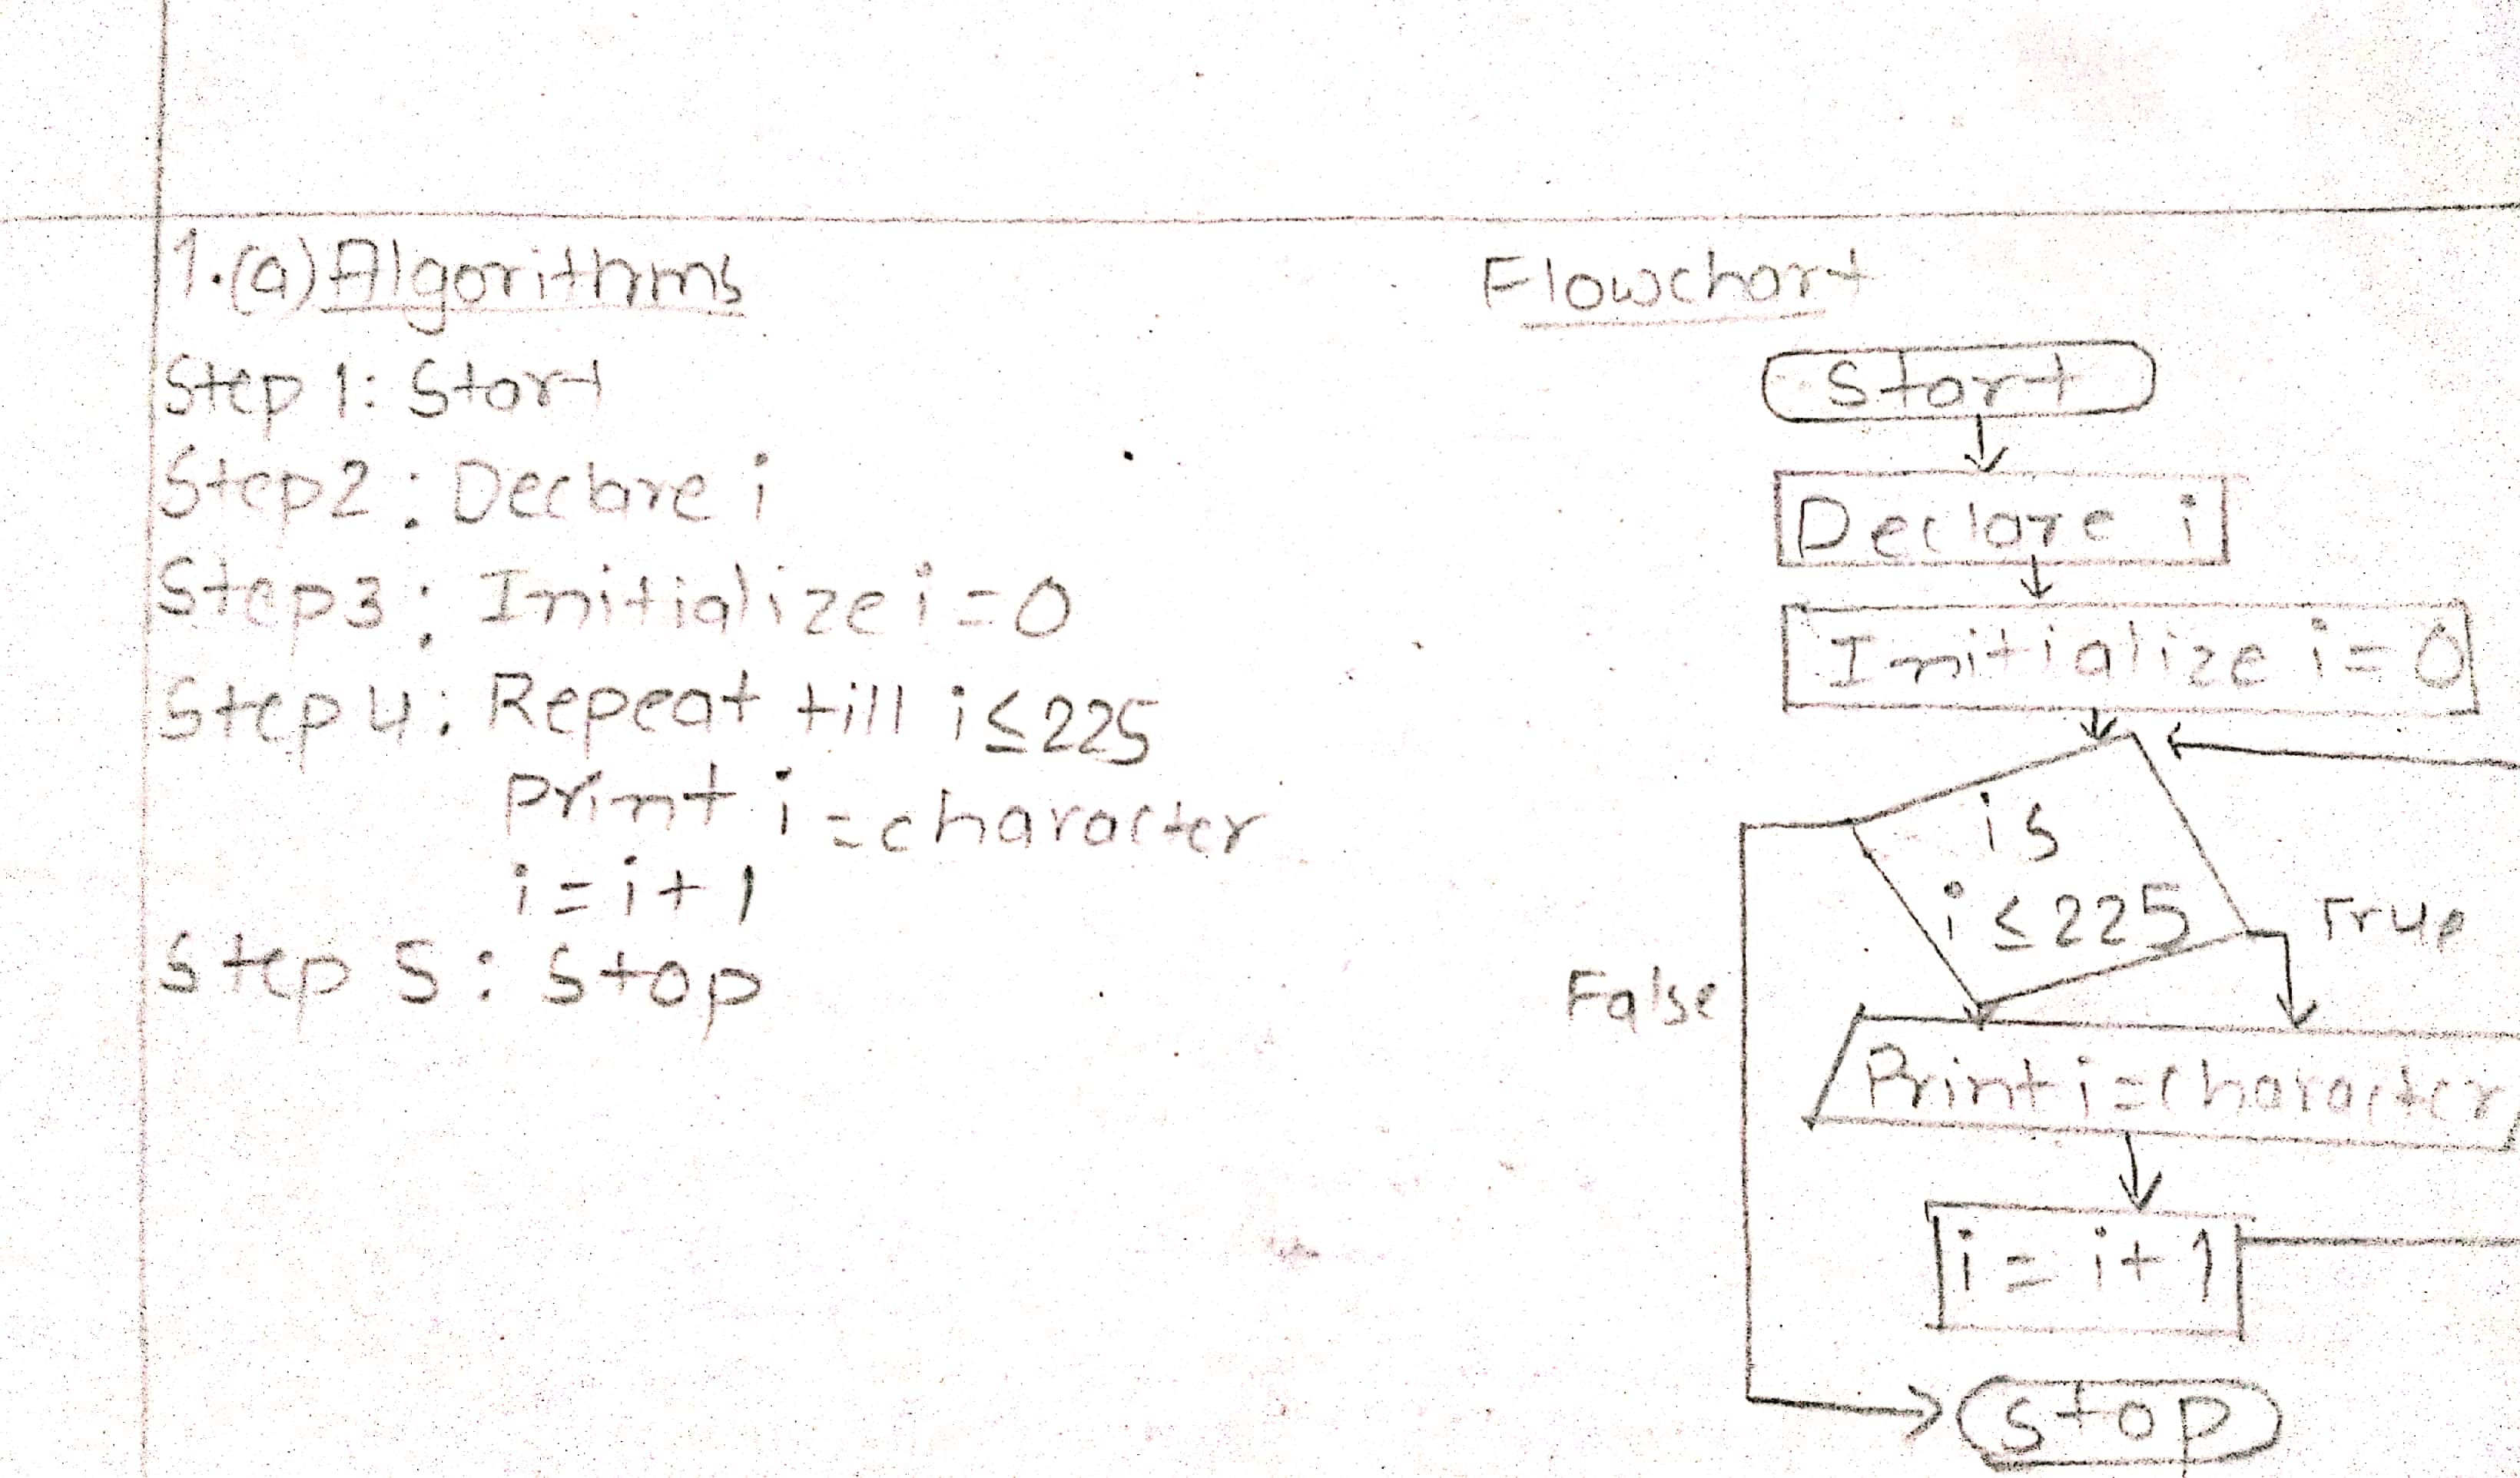 1.(a) Algorithms
Step 1: Start
Step2: Declare i
Step3: Initialize i=0
Step 4: Repeat till i≤225
print i=character
i=i+1
Step 5: Stop
Flowchart
Start
Declare i
Initialize i=0
is
i≤225
True
False
Print i=character
i=i+1
Stop